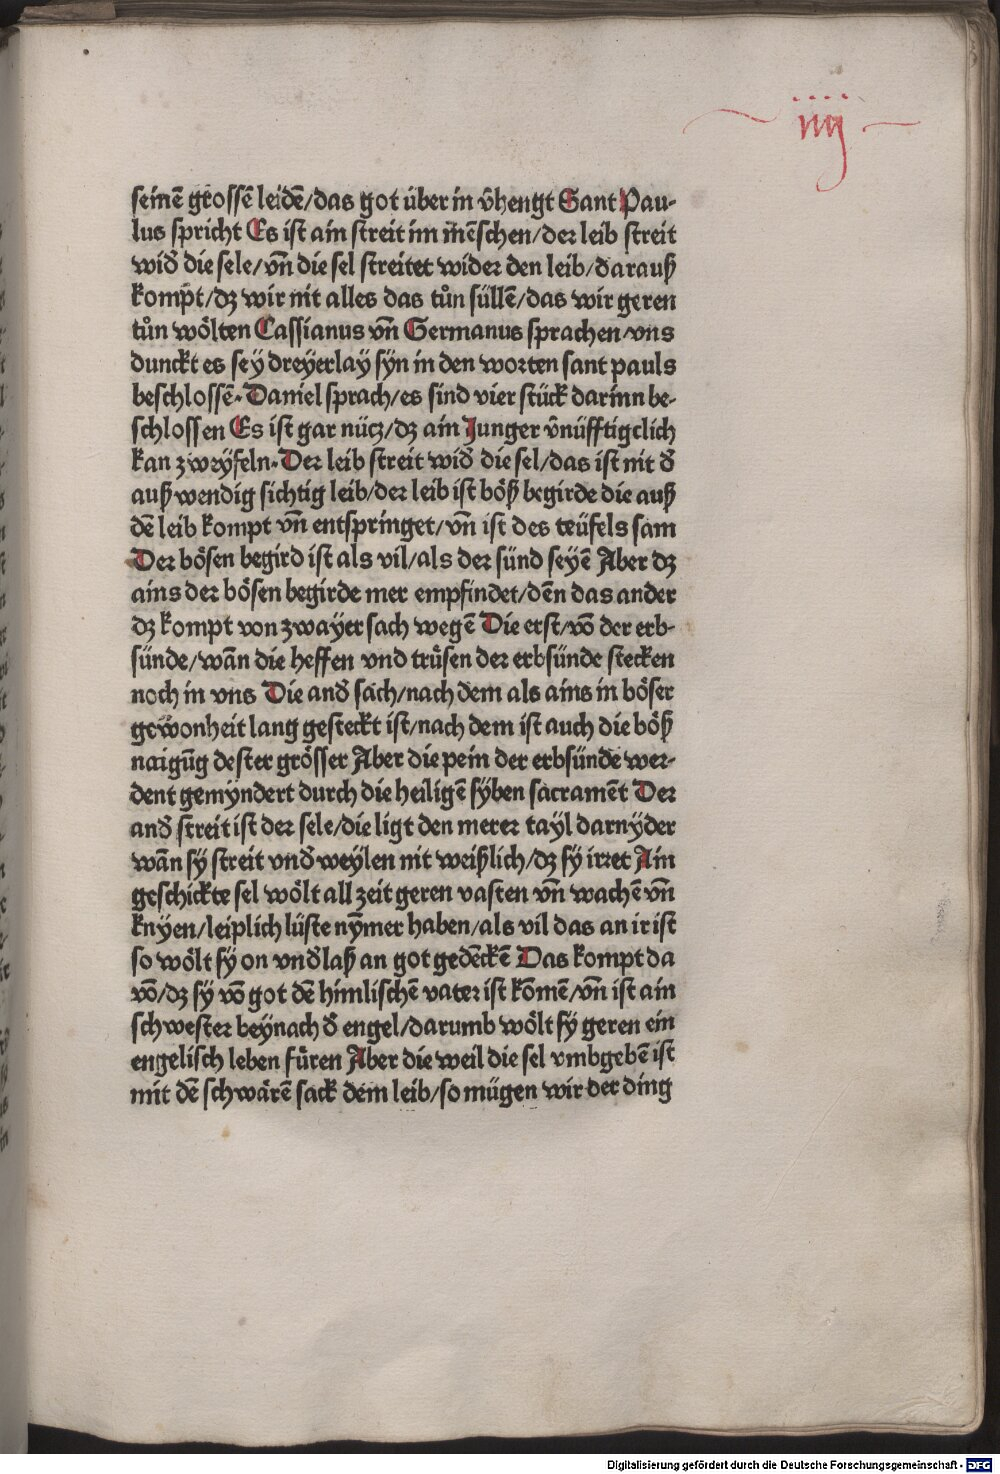 iiij
seinē grossē leidē/das got über in v̄hengt Sant Pau-
lus spricht Es ist ain streit im mēschen/der leib streit
wid᷑ die sele/vn̄ die sel streitet wider den leib/darauß
kompt/dz wir nit alles das tůn süllē/das wir geren
tůn wölten Cassianus vn̄ Germanus sprachen/vns
dunckt es sey dreyerlay syn in den worten sant pauls
beschlossē. Daniel sprach/es sind vier stück darinn be-
schlossen Es ist gar nücz/dz ain Junger v̄nüfftigclich
kan zweyfeln. Der leib streit wid᷑ die sel/das ist nit d᷑
außwendig sichtig leib/der leib ist böß begirde die auß
dē leib kompt vn̄ entspringet/vn̄ ist des teüfels sam
Der bösen begird ist als vil/als der sünd seyē Aber dz
ains der bösen begirde mer empfindet/dēn das ander
dz kompt von zwayer sach wegē Die erst/vō der erb-
sünde/wān die heffen vnd trůsen der erbsünde stecken
noch in vns Die and᷑ sach/nach dem als ains in böser
gewonheit lang gesteckt ist/nach dem ist auch die böß
naigūg dester grösser Aber die pein der erbsünde wer-
dent gemyndert durch die heiligē syben sacramēt Der
and᷑ streit ist der sele/die ligt den merer tayl darnyder
wān sy streit vnd᷑weylen nit weißlich/dz sy irret Ain
geschickte sel wölt allzeit geren vasten vn̄ wachē vn̄
knyen/leiplich lüste nȳmer haben/als vil das an ir ist
so wölt sy on vnd᷑laß an got gedēckē Das kompt da
vō/dz sy vō got dē himlischē vater ist kōmē/vn̄ ist ain
schwester beynach d᷑ engel/darumb wölt sy geren ein
engelisch leben füren Aber die weil die sel vmbgebē ist
mit dē schwärē sack dem leib/so mügen wir der ding
Digitalisierung gefördert durch die Deutsche Forschungsgemeinschaft - DFG